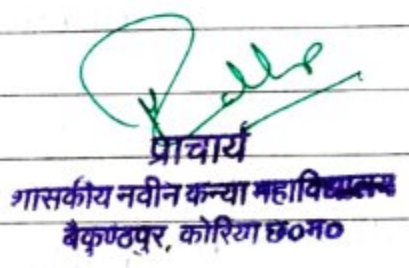 प्राचार्य
शासकीय नवीन कन्या महाविद्यालय
बैकुण्ठपुर, कोरिया छ०ग०